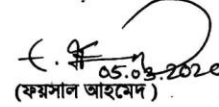 05.03.202
(ফয়সাল আহমেদ)